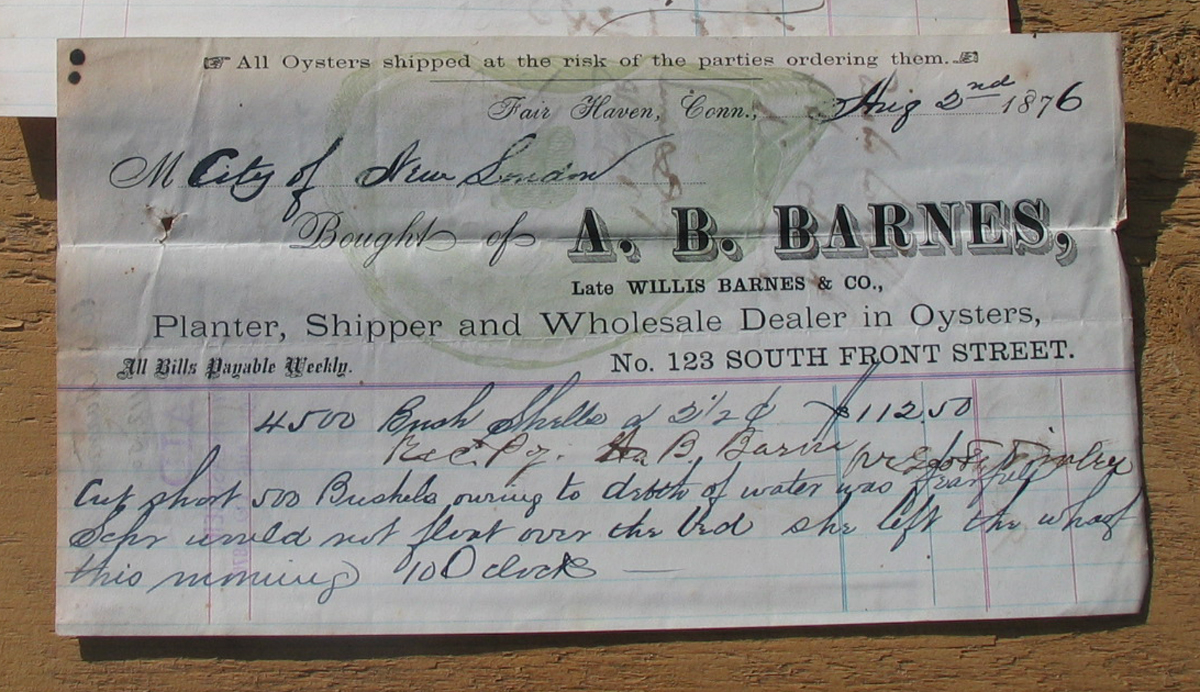 All Oysters shipped at the risk of the parties ordering them.
Fair Haven, Conn., Aug 2nd 1876
M City of New London
Bought of A. B. BARNES,
Late WILLIS BARNES & CO.,
Planter, Shipper and Wholesale Dealer in Oysters,
All Bills Payable Weekly. No. 123 SOUTH FRONT STREET.
4500 Bush Shells a 2 1/2 ¢ $112.50
Rec. Py. A. B. Barnes pr
Cut short 500 Bushels owing to depth of water was fearful
Schr would not float over the bed she left the wharf
this morning 10 Oclock —